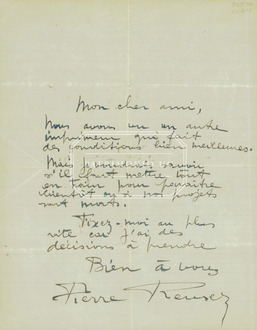 Mon cher ami,
Nous avons vu un autre
imprimeur qui fait
des conditions bien meilleures.
Mais je voudrais savoir
s'il faut mettre tout
en train pour paraître
bientôt ou si nos projets
sont morts.
Fixez-moi au plus
vite car j'ai des
décisions à prendre
Bien à vous
Pierre